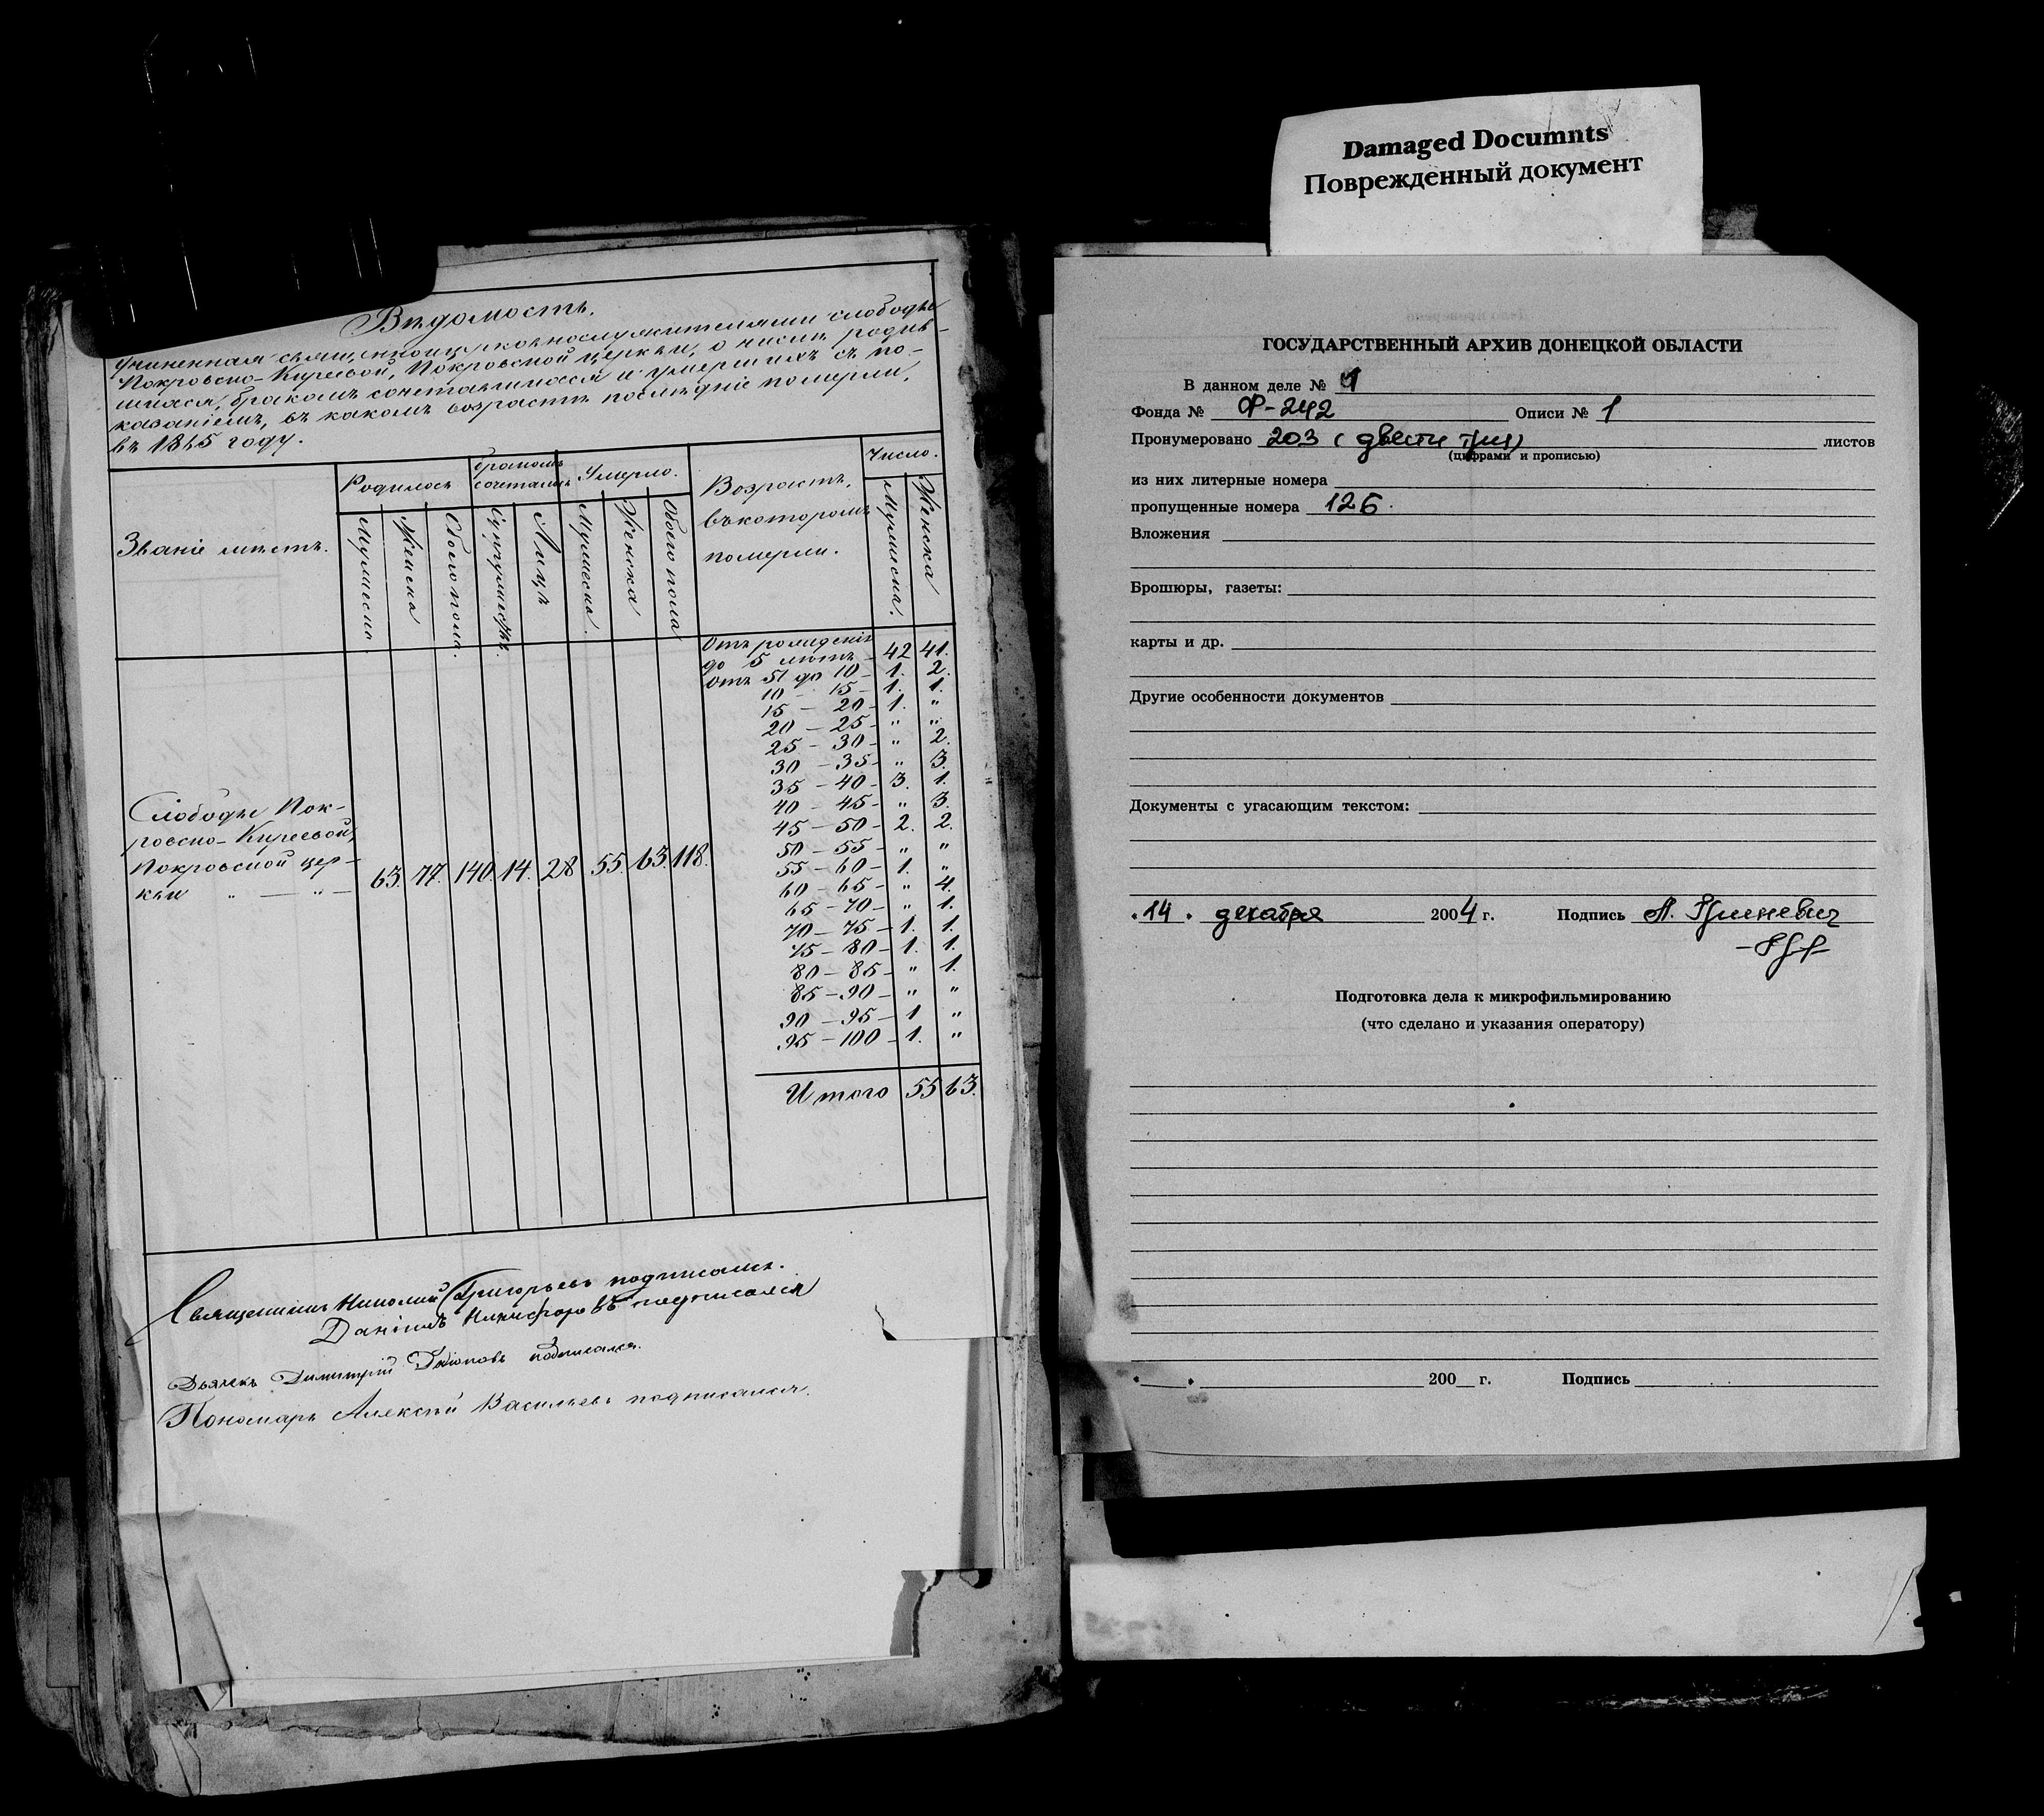 Вѣдомость.
Учиненная священноцерковнослужителями слободы
Покровско-Киреевой, Покровской церкви, о числѣ родив-
шихся, бракомъ сочетавшихся и умершихъ съ по-
казаніемъ, въ какомъ возрастѣ послѣдніе померли,
въ 1865 году.
Званіе мѣстъ.
Родилось
бракомъ сочетались
Умерло.
Возрастъ,
въ которомъ
померли.
Число.
Мужеска
Женска
Обоего пола.
Супружествъ.
Лицъ
Мужеска.
Женска
Обоего пола
Мужеска.
Женска
Отъ рожденія
до 5 лѣтъ - 42 41.
Отъ 5 до 10 - 1. 2.
10 - 15 - 1. 1.
15 - 20 - 1. "
20 - 25 - " "
25 - 30 - " 2.
30 - 35 - " 3.
35 - 40 - 3. 1.
40 - 45 - " 3.
45 - 50 - 2. 2.
50 - 55 - " "
55 - 60 - 1. "
60 - 65 - " 4.
65 - 70 - " 1.
70 - 75 - 1. 1.
75 - 80 - 1. 1.
80 - 85 - " 1.
85 - 90 - " "
90 - 95 - 1 "
95 - 100 - 1. "
Итого 55 63.
Слободы Пок-
ровско-Киреевой,
Покровской цер-
кви " — " —
63. 77. 140. 14. 28 55. 63. 118.
Священникъ Николай Григорьевъ подписалъ.
Никифоровъ подписался
Дьячекъ Димитрій подписался.
Пономарь Алексѣй Васильевъ подписался.
Damaged Documnts
Поврежденный документ
ГОСУДАРСТВЕННЫЙ АРХИВ ДОНЕЦКОЙ ОБЛАСТИ
В данном деле №
Фонда № Ф-242 Описи № 1
Пронумеровано 203 (двести три) листов
(цифрами и прописью)
из них литерные номера
пропущенные номера 126.
Вложения
Брошюры, газеты:
карты и др.
Другие особенности документов
Документы с угасающим текстом:
"14" декабря 2004 г. Подпись А. Гриневич
Подготовка дела к микрофильмированию
(что сделано и указания оператору)
200 г. Подпись